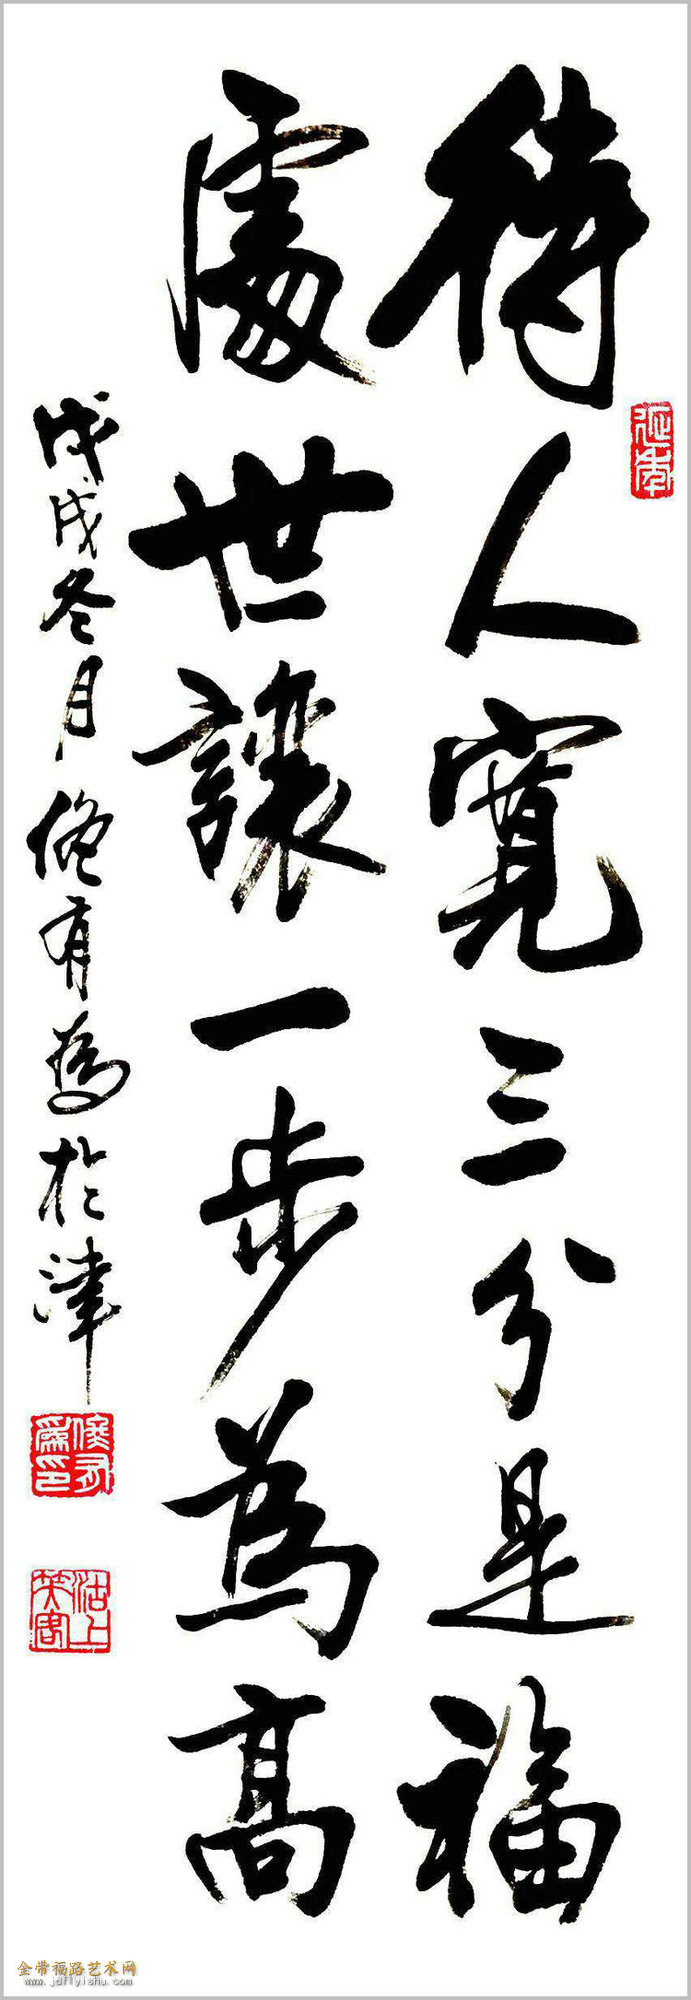 待人寬三分是福
處世讓一步為高
戊戌冬月偹有為於津
延年
金带福路艺术网
www.jdflyishu.com